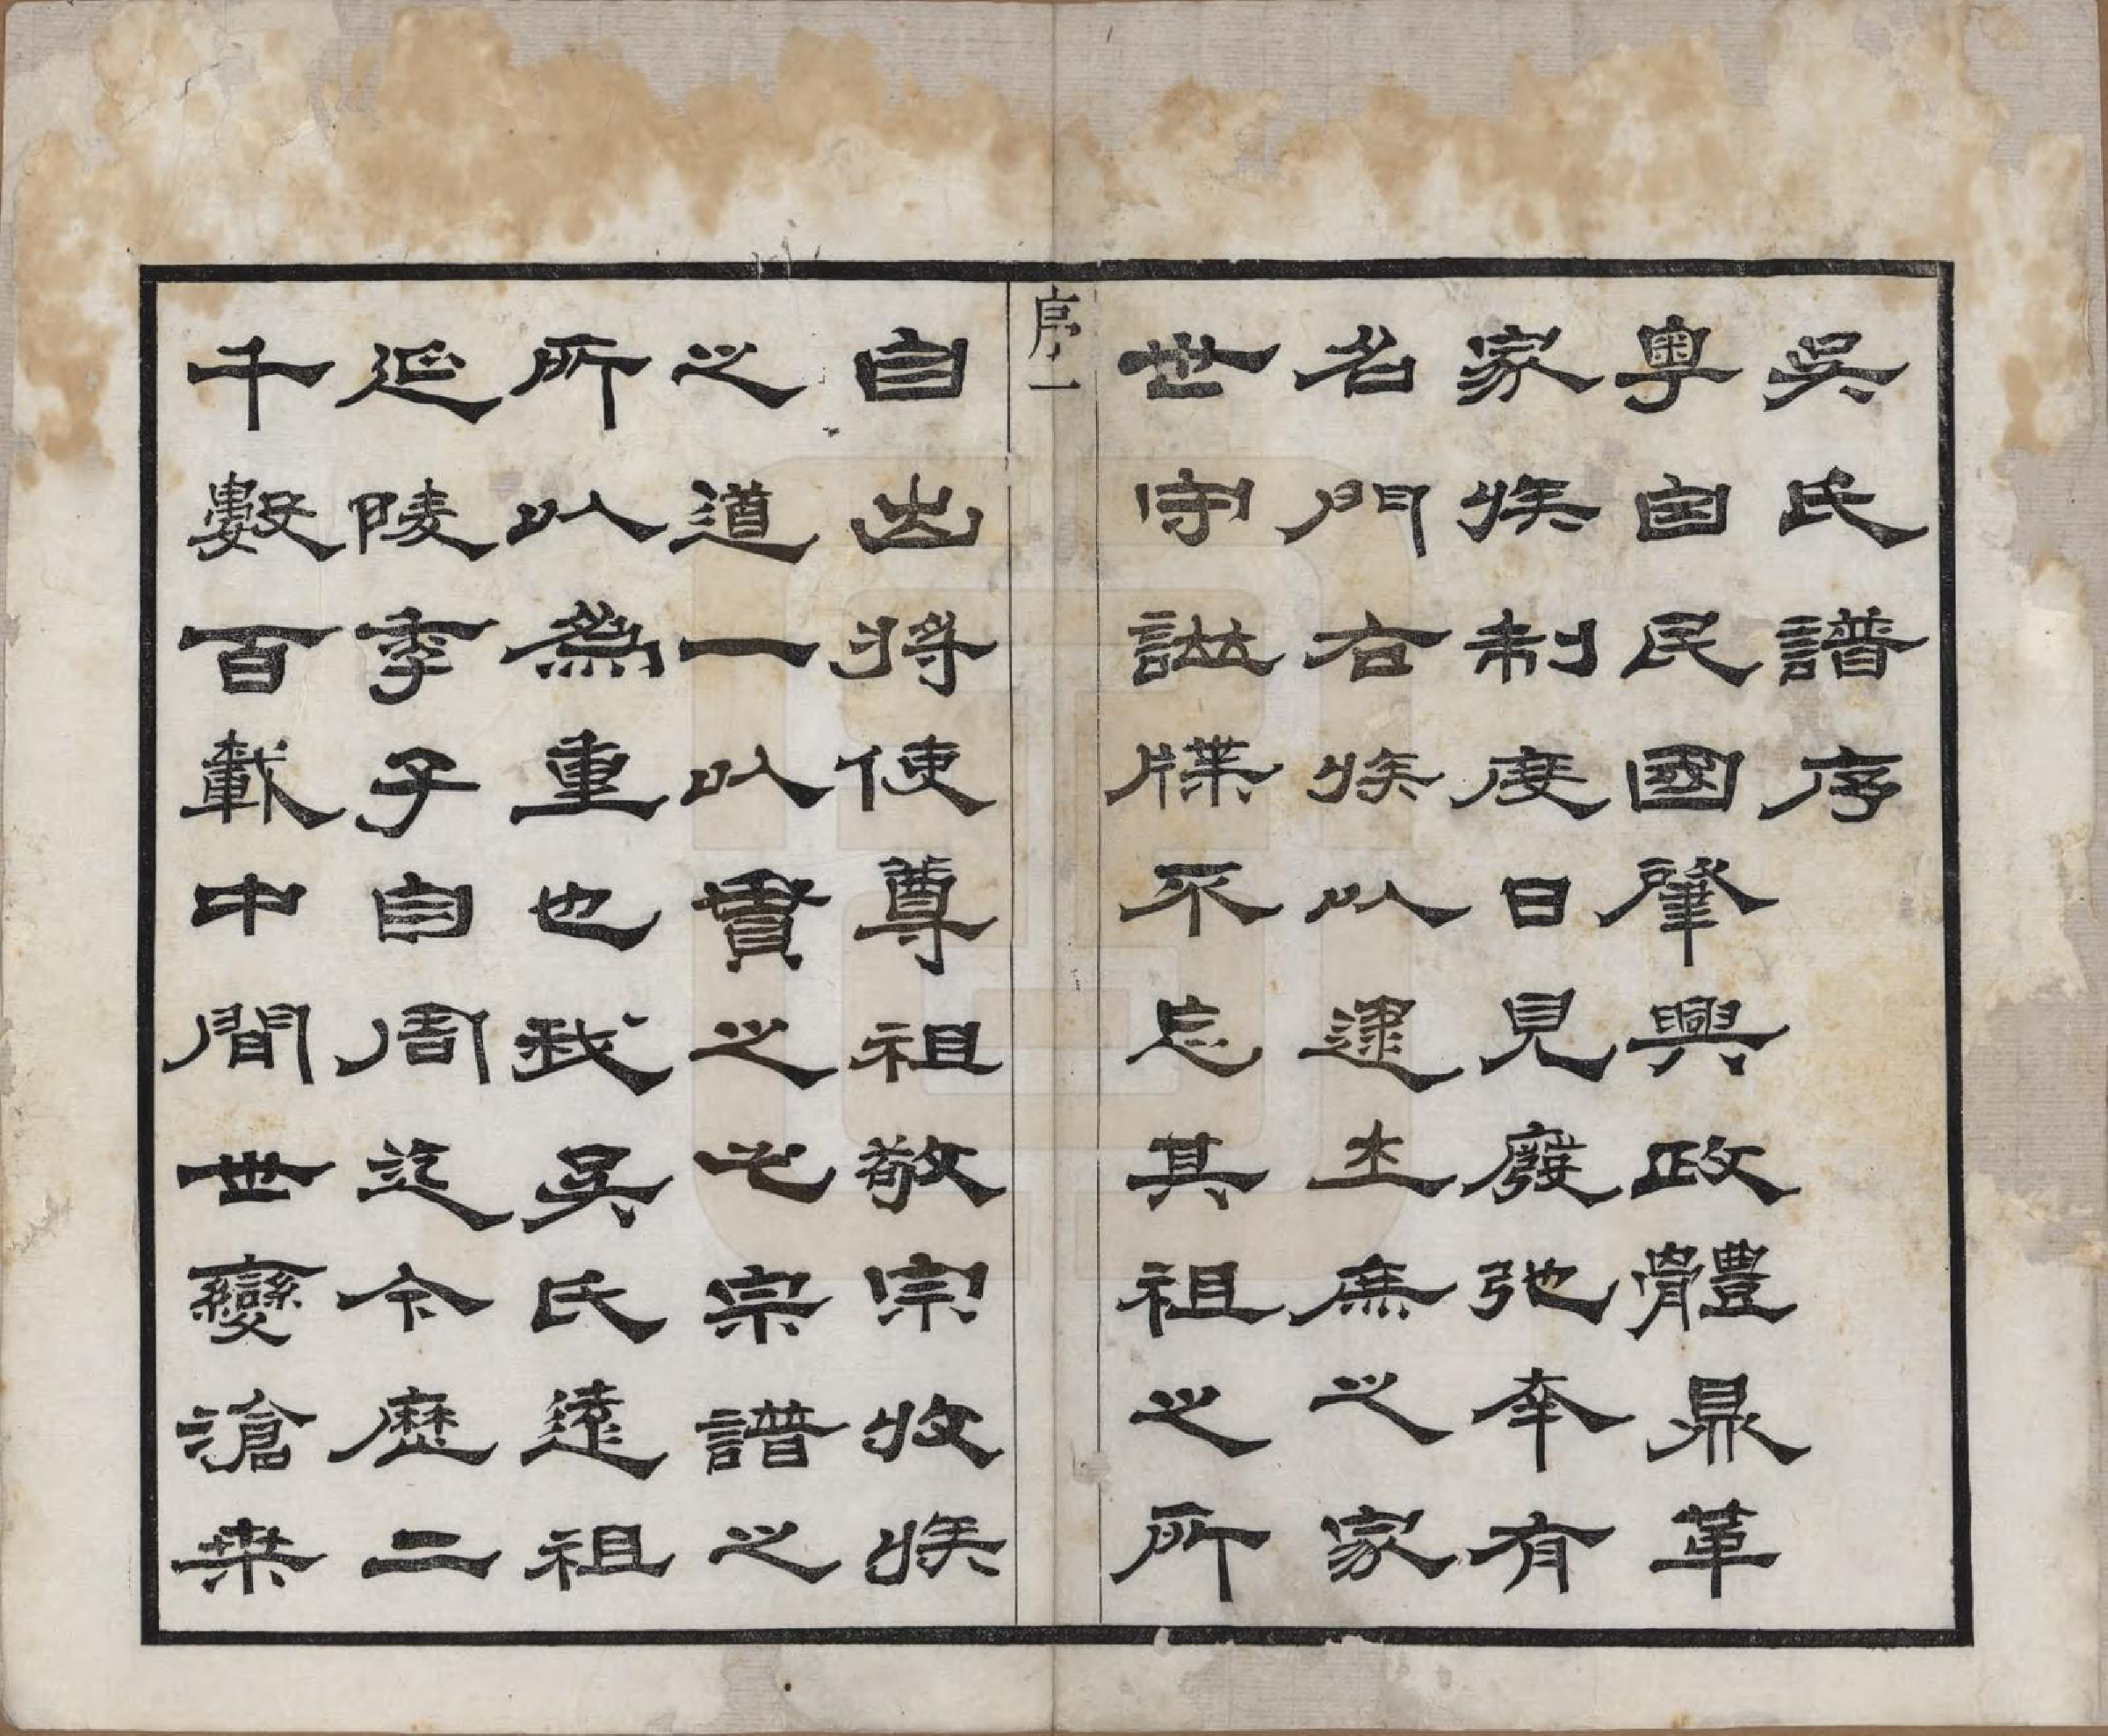 吳氏譜序
粵自民國肇興政體鼎革
家族制度日見廢弛幸有
名門右族以逮士庶之家
世守譜牒不忘其祖之所
序 一
自出將使尊祖敬宗收族
之道一以貫之此宗譜之
所以為重也我吳氏遠祖
延陵季子自周迄今歷二
千數百載中間世變滄桑